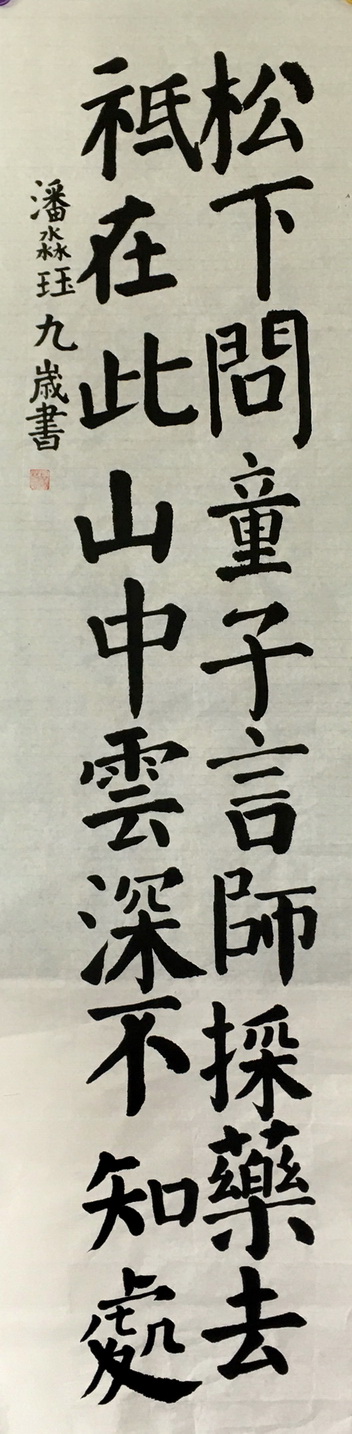 松下問童子言師採藥去
祗在此山中雲深不知處
潘淼珏九歲書